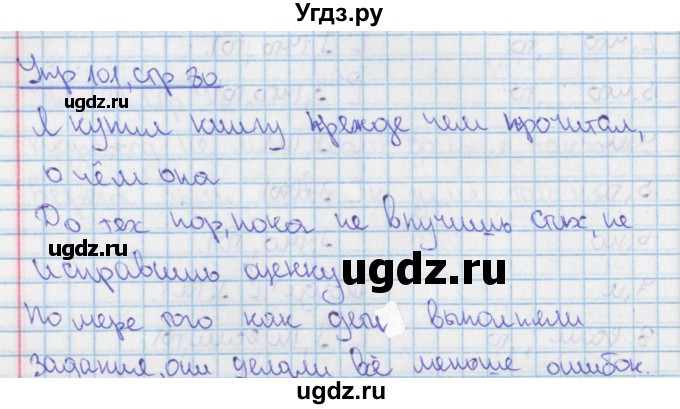 Угдз.ру
Упр 101, стр 30
ugdz.ru
Я купил книгу прежде чем прочитал,
о чём она
ugdz.ru
До тех пор, пока не выучишь стих, не
исправишь оценку
ugdz.ru
ugdz.ru
По мере того как дети выполняли
задания, они делали всё меньше ошибок.
ugdz.ru